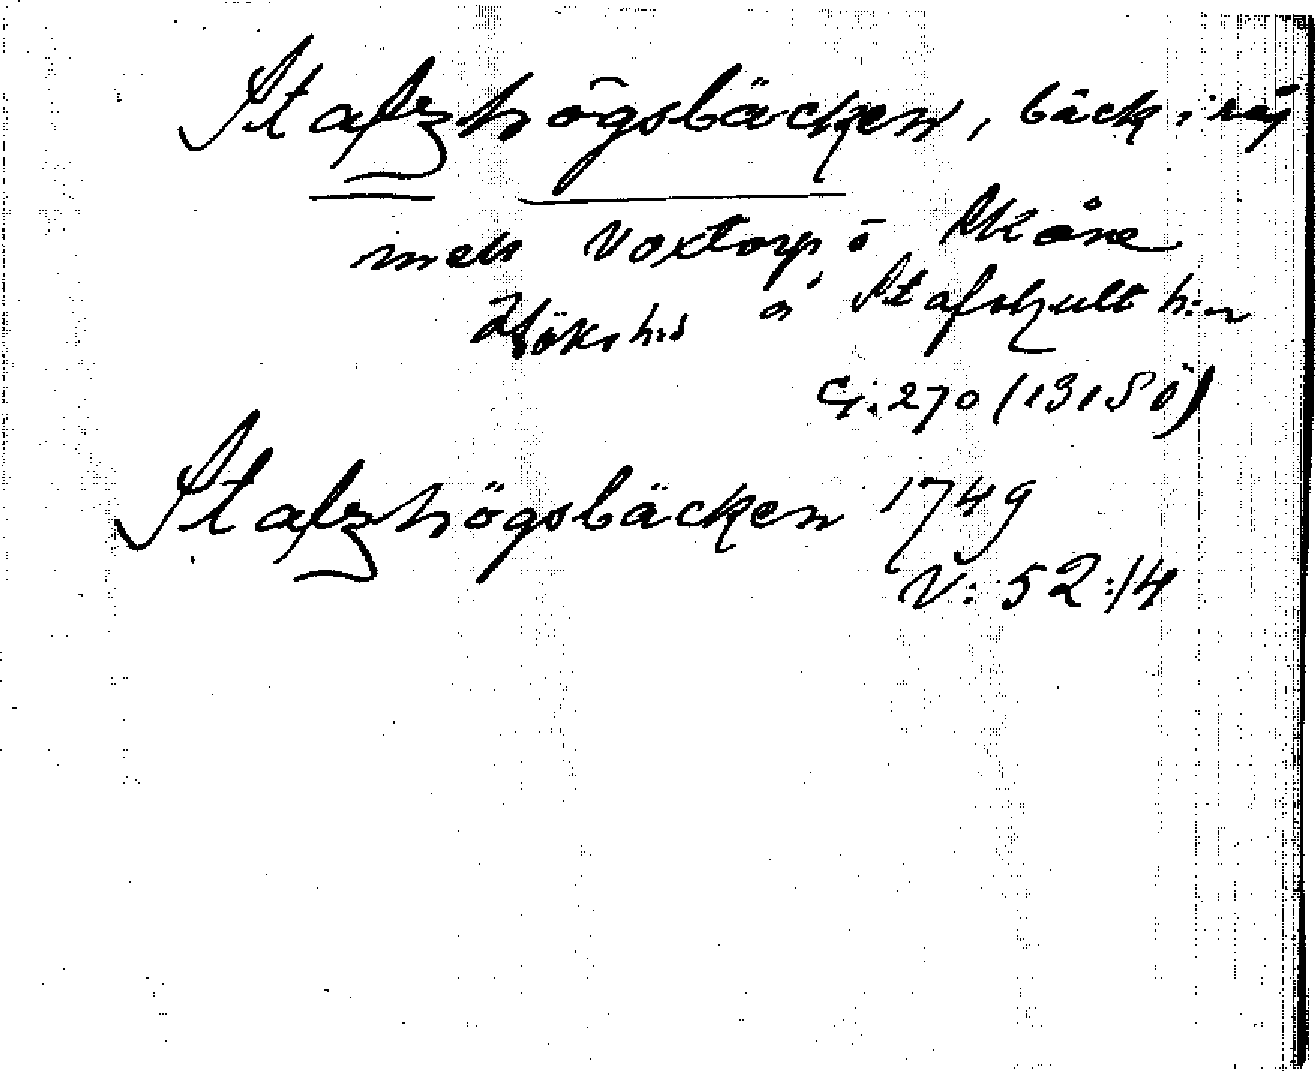 Stafzhögsbäcken, bäck i råg
mell Voxtorp o Skåne
Höks hd o Stafshult h:n
G: 270 (1315 ö)
Stafzhögsbäcken 1749
V: 52:14